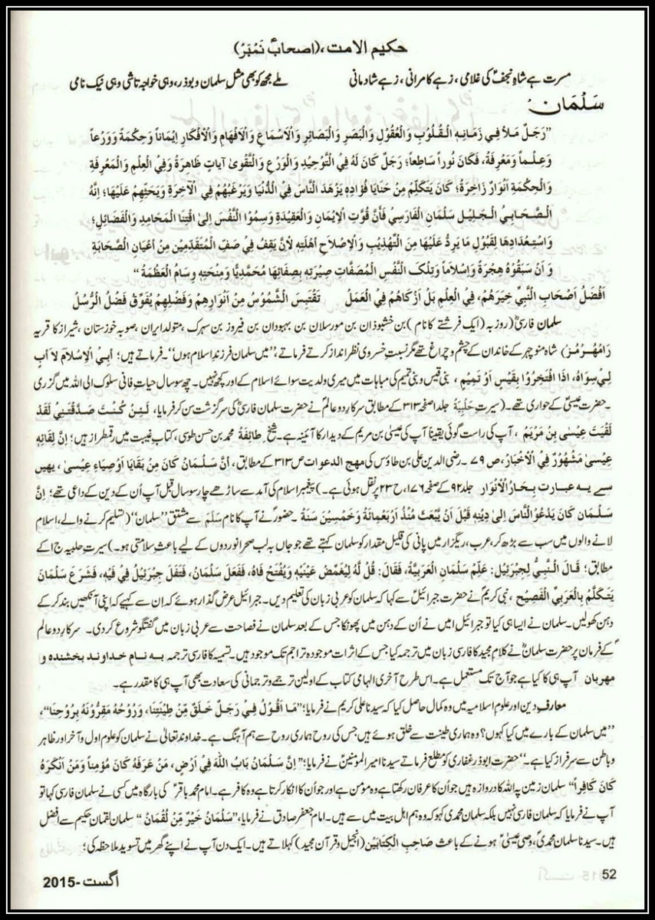 حکیم الامت، (اصحابؓ نمبر)
مسرت ہے شاہِ نجفؑ کی غلامی، زہے کامرانی، زہے شادمانی ملے مجھ کو بھی مثل سلمان و بوذر، وہی خواجہ تاشی وہی نیک نامی
سَلْمَان:
”رَجُلٌ مَلَأَ فِي زَمَانِهِ الْقُلُوْبَ وَالْعُقُوْلَ وَالْبَصَرَ وَالْبَصَائِرَ وَالْاَسْمَاعَ وَالْاَفْهَامَ وَالْاَفْكَارَ إِيْمَاناً وَحِكْمَةً وَوَرَعاً
وَعِلْماً وَمَعْرِفَةً، فَكَانَ نُوراً سَاطِعاً؛ رَجُلٌ كَانَ لَهُ فِي التَّوْحِيْدِ وَالْوَرَعِ وَالتَّقْوَىٰ آيَاتٌ ظَاهِرَةٌ وَفِي الْعِلْمِ وَالْمَعْرِفَةِ
وَالْحِكْمَةِ أَنْوَارٌ زَاخِرَةٌ؛ كَانَ يَتَكَلَّمُ مِنْ حَنَايَا فُؤَادِهِ يَزْهَدُ النَّاسَ فِي الدُّنْيَا وَيَرْغَبُهُمْ فِي الْآخِرَةِ وَيَحُثُّهُمْ عَلَيْهَا؛ إِنَّهُ
الصَّحَابِيُّ الْجَلِيْلُ سَلْمَانُ الْفَارَسِيُّ فَأَنَّ قُوَّةَ الْإِيْمَانِ وَالْعَقِيْدَةِ وَسِمُوَّا النَّفْسِ إِلىٰ اقْتِنَا الْمَحَامِدِ وَالْفَضَائِلِ؛
وَاسْتِعْدَادِهَا لِقَبُوْلِ مَا يَرِدُ عَلَيْهَا مِنَ التَّهْذِيْبِ وَالْإِصْلَاحِ اَهْلَتِهِ لِأَنْ يَقِفَ فِي صَفِّ الْمُتَقَدِّمِيْنَ مِنْ أَعْيَانِ الصَّحَابَةِ
وَأَنْ سَبَقُوْهُ هِجْرَةً وَإِسْلَاماً وَتِلْكَ النَّفْسُ الْمُصَفَّاتُ صَيَّرَتْهِ بِصِفَاتِهَا مُحَمَّدِيًّا وَمَنَحَتْهِ وِسَامُ الْعَظَمَةِ“
اَفْضَلُ اَصْحَابِ النَّبِيِّ خَيْرُهُمْ، فِي الْعِلْمِ بَلْ اَزْكَاهُمْ فِي الْعَمَلِ تَقْتَبِسُ الشُّمُوْسُ مِنْ اَنْوَارِهِمْ وَفَضْلُهُمْ يُفَوِّقُ فَضْلُ الرُّسُلِ
سلمان فارسیؓ (روزبہ (ایک فرشتے کا نام) بن خشبوذان بن مورسلان بن بہبودان بن فیروز بن سہرک، متولد ایران بصوبہ خوزستان، شیراز کا قریہ
رَامَهُرْمُز) شاہ منوچہر کے خاندان کے چشم و چراغ تھے مگر نسبتِ خسروی نظر انداز کرتے فرماتے؛ ”میں سلمان فرزندِ اسلام ہوں“۔ فرماتے ہیں؛ اَبِي الْاِسْلَامُ لَا اَبَ
لِيْ سِوَاهُ، اِذَا افْتَخَرُوْا بِقَيْسٍ اَوْ تَمِيْمٍ، بنی قیس و بنی تمیم کی مباہات میں میری ولدیت سوائے اسلام کے اور کچھ نہیں۔ چھ سو سال حیاتِ فانی سلوک الی اللہ میں گزری
۔ حضرت عیسیٰؑ کے حواری تھے۔ (سیرت حَلَبِيَّة جلد ا صفحہ ۳۱۳ کے مطابق سرکار دو عالمؐ نے حضرت سلمان فارسیؓ کی سرگزشت سن کر فرمایا، لَئِنْ كُنْتَ صَدَقْتَنِيْ لَقَدْ
لَقِيْتَ عِيْسٰى بْنَ مَرْيَمَ، آپ کی راست گوئی یقیناً آپ کی عیسیٰ بن مریم کے دیدار کا آئینہ ہے۔ شیخ طَائِفَة محمد بن حسن طوسی، کتاب غیبت میں رقمطراز ہیں؛ اِنَّ لِقَائَهٗ
عِيْسٰى مَشْهُوْرٌ فِي الْاَخْبَارِ، ص ۷۹۔ رضی الدین علی بن طاؤس کی مهج الدعوات ص ۳۱۳ کے مطابق، اَنَّ سَلْمَانَ كَانَ مِنْ بَقَايَا اَوْصِيَاءِ عِيْسٰى، یہیں
سے یہ عبارت بِحَارُ الْاَنْوَار جلد ۹۲ کے صفحہ ۱۷۱، ح ۲۳ پر نقل ہوئی ہے۔) پیغمبرِ اسلام کی آمد سے ساڑھے چار سو سال قبل آپ اُن کے دین کے داعی تھے؛ اِنَّ
سَلْمَانَ كَانَ يَدْعُوْ النَّاسَ اِلىٰ دِيْنِهٖ قَبْلَ اَنْ يُبْعَثَ مُنْذُ اَرْبَعُمِائَةٍ وَخَمْسِيْنَ سَنَةً۔ حضورؐ نے آپ کا نام سَلَم سے مشتق ”سلمان“ (تسلیم کرنے والے، اسلام
لانے والوں میں سب سے بڑھ کر، عرب، ریگزار میں پانی کی قلیل مقدار کو سلمان کہتے تھے جو جاں بہ لب صحرا نوردوں کے لیے باعثِ سلامتی ہو۔) سیرت حلبیہ ج ا کے
مطابق؛ قَالَ النَّبِيُّ لِجِبْرَئِيْلَ: عَلِّمْ سَلْمَانَ الْعَرَبِيَّةَ، فَقَالَ: قُلْ لَهٗ لِيُغْمِضْ عَيْنَيْهِ وَيُفْتَحْ فَاهُ، فَفَعَلَ سَلْمَانُ، فَتَفَلَ جِبْرَئِيْلُ فِيْ فِيْهِ، فَشَرَعَ سَلْمَانُ
يَتَكَلَّمُ بِالْعَرَبِيِّ الْفَصِيْحِ، نبی کریمؐ نے حضرت جبرائیلؑ سے کہا کہ سلمان کو عربی زبان کی تعلیم دیں۔ جبرائیل عرض گذار ہوئے کہ ان سے کہیے کہ اپنی آنکھیں بند کر کے
دہن کھولیں۔ سلمان نے ایسا ہی کیا تو جبرائیل امیں نے اُن کے دہن میں پھونکا جس کے بعد سلمان نے فصاحت سے عربی زبان میں گفتگو شروع کر دی۔ سرکار دو عالم
ؐ کے فرمان پر حضرت سلمانؓ نے کلام مجید کا فارسی زبان میں ترجمہ کیا جس کے اثرات موجودہ تراجم تک موجود ہیں۔ تسمیہ کا فارسی ترجمہ بہ نام خداوند بخشندہ و
مہربان آپ ہی کا کیا ہے جو آج تک مستعمل ہے۔ اس طرح آخری الہامی کتاب کے اولین ترجمے و ترجمانی کی سعادت بھی آپ ہی کا مقدر ہے۔
معارف دین اور علوم اسلامیہ میں وہ کمال حاصل کیا کہ سیدنا علی کریم نے فرمایا؛ ”مَا اَقُوْلُ فِيْ رَجُلٍ خُلِقَ مِنْ طِيْنَتِنَا، وَرُوْحُهٗ مَقْرُوْنَةٌ بِرُوْحِنَا“،
”میں سلمان کے بارے میں کیا کہوں؟ وہ ہماری طینت سے خلق ہوئے ہیں جس کی روح ہماری روح سے ہم آہنگ ہے۔ خداوند تعالیٰ نے سلمان کو علوم اول و آخر اور ظاہر
و باطن سے سرفراز کیا ہے۔“ حضرت ابوذر غفاریؓ کو مطلع فرماتے سیدنا امیر المومنینؑ نے فرمایا؛ ”اِنَّ سَلْمَانَ بَابُ اللّٰهِ فِيْ اَرْضٍ، مَنْ عَرَفَهٗ كَانَ مُؤْمِناً وَمَنْ اَنْكَرَهٗ
كَانَ كَافِراً“ سلمان زمین پہ اللہ کا دروازہ ہیں جو اُن کا عرفان رکھتا ہے وہ مؤمن ہے اور جو اُن کا انکار کرتا ہے وہ کافر ہے۔ امام محمد باقرؑ کی بارگاہ میں کسی نے سلمان فارسی کہا تو
آپ نے فرمایا کہ سلمان فارسی نہیں بلکہ سلمان محمدی کہو کہ وہ ہم اہل بیت میں سے ہیں۔ امام جعفر صادقؑ نے فرمایا، ”سَلْمَانُ خَيْرٌ مِنْ لُقْمَانَ“ سلمان لقمان حکیم سے افضل
ہیں۔ سیدنا سلمان محمدیؓ، وصی عیسیٰؑ ہونے کے باعث صَاحِبُ الْكِتَابَيْنِ (انجیل و قرآن مجید) کہلاتے ہیں۔ ایک دن آپ نے اپنے گھر میں تسوید ملاحظہ کی؛
52
اگست-2015